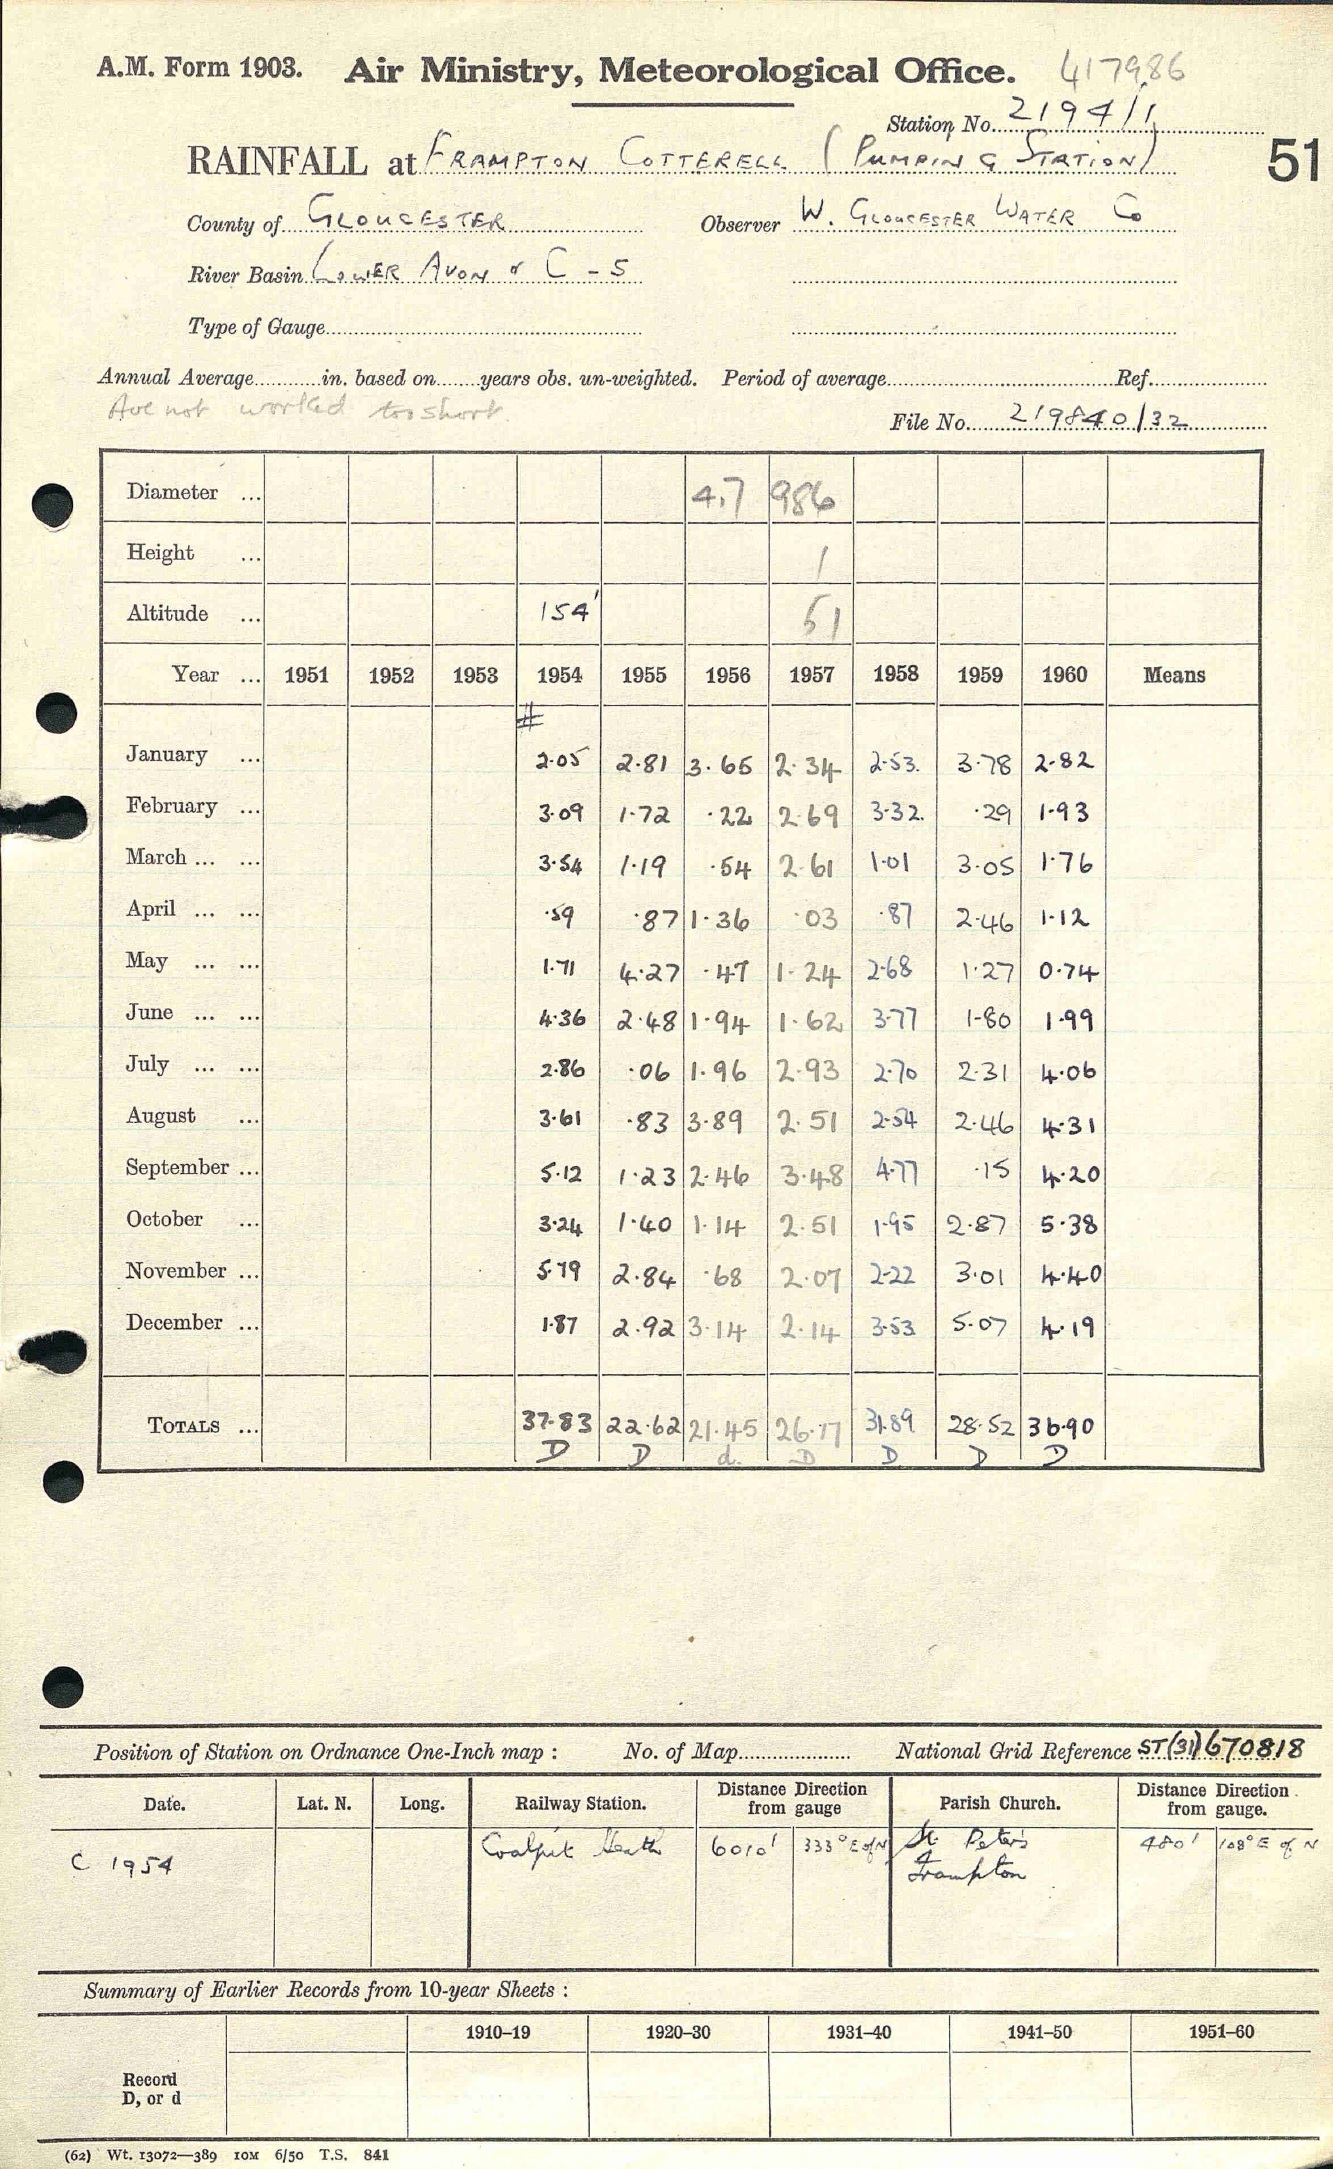 A.M. Form 1903. Air Ministry, Meteorological Office. 417986
Station No. 2194/1
RAINFALL at FRAMPTON COTTERELL (PUMPING STATION) 51
County of GLOUCESTER Observer W. GLOUCESTER WATER Co
River Basin LOWER AVON & C - 5
Type of Gauge
Annual Average in. based on years obs. un-weighted. Period of average Ref.
Ave not worked too short
File No. 219840/32
Diameter ... 4.7 986
Height ... 1
Altitude ... 154' 51
Year ... 1951 1952 1953 1954 1955 1956 1957 1958 1959 1960 Means
#
January ... 2.05 2.81 3.65 2.34 2.53 3.78 2.82
February ... 3.09 1.72 .22 2.69 3.32 .29 1.93
March ... ... 3.54 1.19 .54 2.61 1.01 3.05 1.76
April ... ... .59 .87 1.36 .03 .87 2.46 1.12
May ... ... 1.71 4.27 .47 1.24 2.68 1.27 0.74
June ... ... 4.36 2.48 1.94 1.62 3.77 1.80 1.99
July ... ... 2.86 .06 1.96 2.93 2.70 2.31 4.06
August ... 3.61 .83 3.89 2.51 2.54 2.46 4.31
September ... 5.12 1.23 2.46 3.48 4.77 .15 4.20
October ... 3.24 1.40 1.14 2.51 1.95 2.87 5.38
November ... 5.79 2.84 .68 2.07 2.22 3.01 4.40
December ... 1.87 2.92 3.14 2.14 3.53 5.07 4.19
TOTALS ... 37.83 22.62 21.45 26.17 31.89 28.52 36.90
D D d. D D D D
Position of Station on Ordnance One-Inch map : No. of Map National Grid Reference ST(31)670818
Date. Lat. N. Long. Railway Station. Distance Direction from gauge Parish Church. Distance Direction from gauge.
C 1954 Coalpit Heath 6010' 333° E of N St Peter's 480' 108° E of N
Frampton
Summary of Earlier Records from 10-year Sheets :
1910–19 1920–30 1931–40 1941–50 1951–60
Record
D, or d
(62) Wt. 13072—389 10M 6/50 T.S. 841